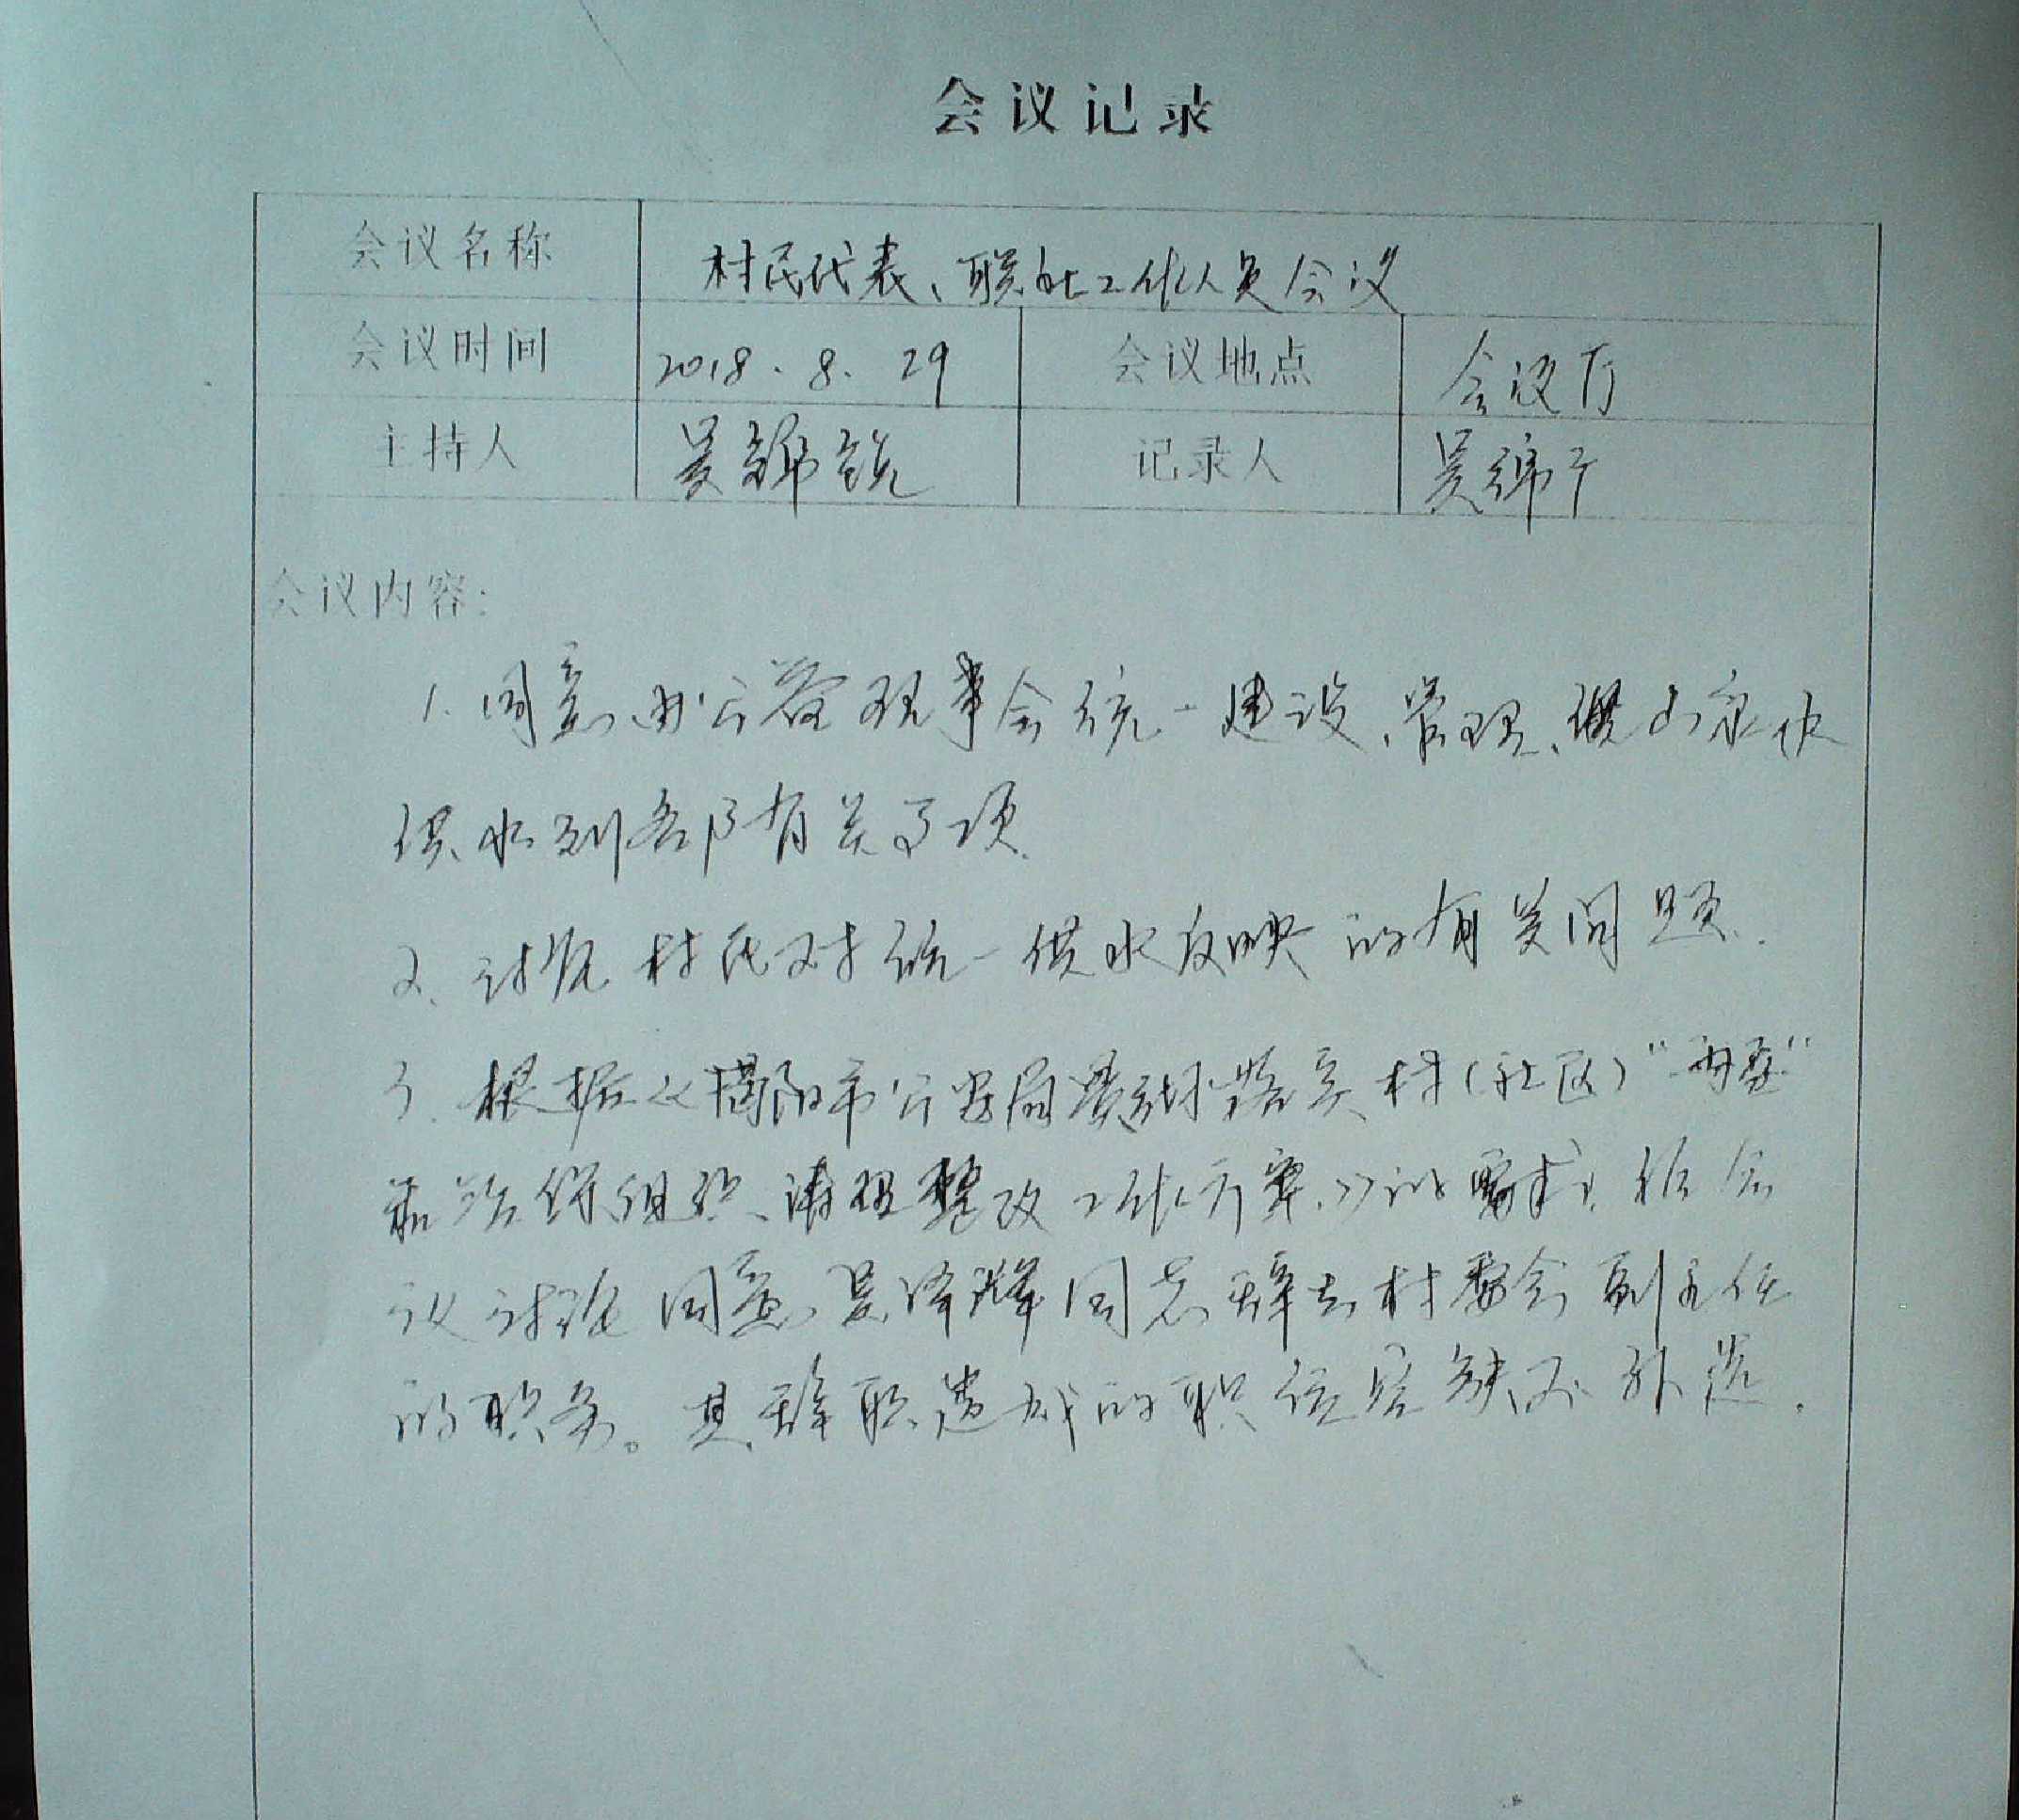 会议记录
会议名称 村民代表、联社工作人员会议
会议时间 2018.8.29 会议地点 会议厅
主持人 吴锦锐 记录人 吴锦
会议内容:
1.同意由公益理事会统一建设、管理、供山泉水
供水到各户有关事项.
2、讨论村民对统一供水反映的有关问题.
3.根据《揭阳市公安局贯彻落实村(社区)"两委"
和治保组织清理整改工作方案》的要求,经会
议讨论同意吴泽群同志辞去村委会副主任
的职务。其辞职造成的职位空缺不补选.